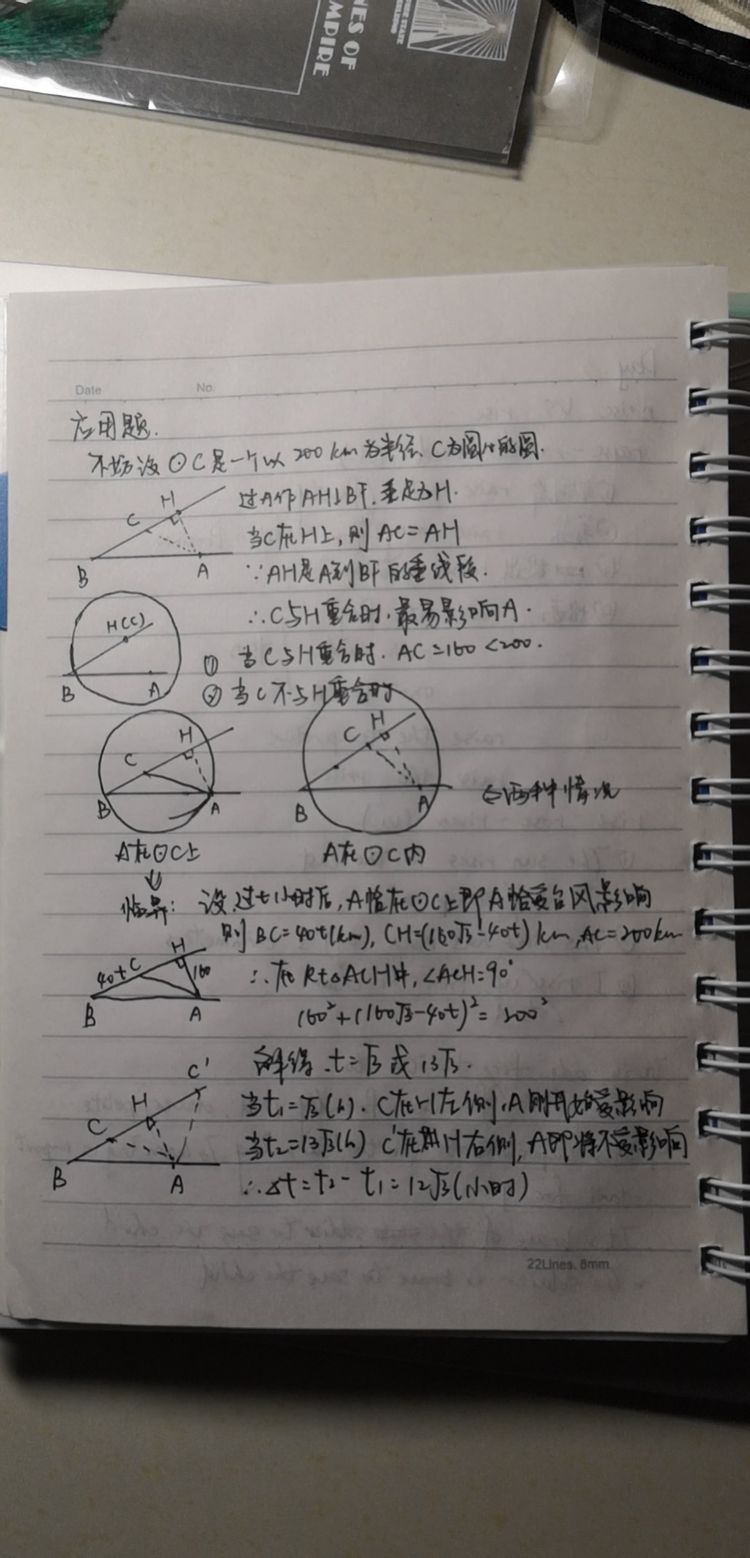 NES OF
MPIRE
Date No.
应用题.
不妨设⊙C是一个以200km为半径、C为圆心的圆.
过A作AH⊥BF,垂足为H.
H
C
B A
当C在H上,则AC=AH
∵AH是A到BF的垂线段.
∴C与H重合时,最易影响A.
H(C)
B A
① 当C与H重合时. AC=160<200.
② 当C不与H重合时
H
C
B A
H
C
B A
←两种情况
A在⊙C上 A在⊙C内
临界: 设过t小时后,A恰在⊙C上即A恰受台风影响
则BC=40t(km), CH=(160√3-40t)km, AC=200km
40t C H 160
B A
∴在Rt△ACH中,∠ACH=90°
160²+(160√3-40t)²=200²
解得 t=√3 或 13√3.
C'
H
C
B A
当t₁=√3(h). C在H左侧,A刚开始受影响
当t₂=13√3(h) C'在H右侧,A即将不受影响
∴Δt=t₂-t₁=12√3(小时)
22Lines. 8mm.